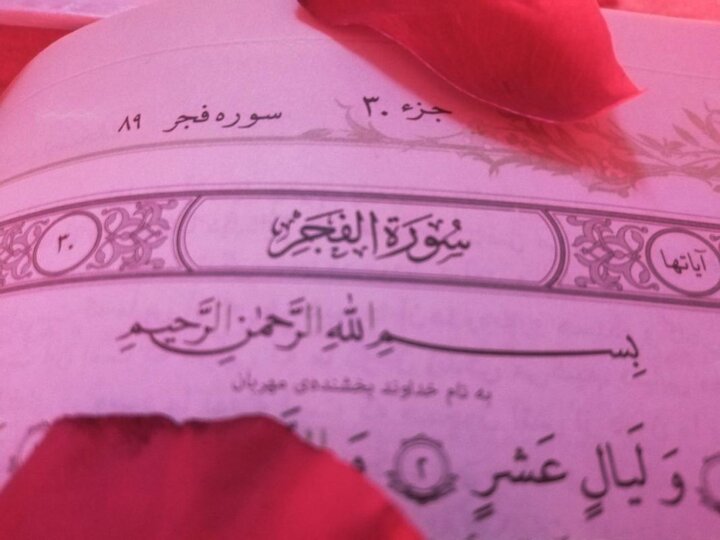 جزء ۳۰
سوره فجر ۸۹
آیاتها سُورَةُ الفَجرِ ۳۰
بِسمِ اللهِ الرَّحمٰنِ الرَّحیمِ
به نام خداوند بخشنده‌ی مهربان
وَ لَیَالٍ عَشرٍ ۲